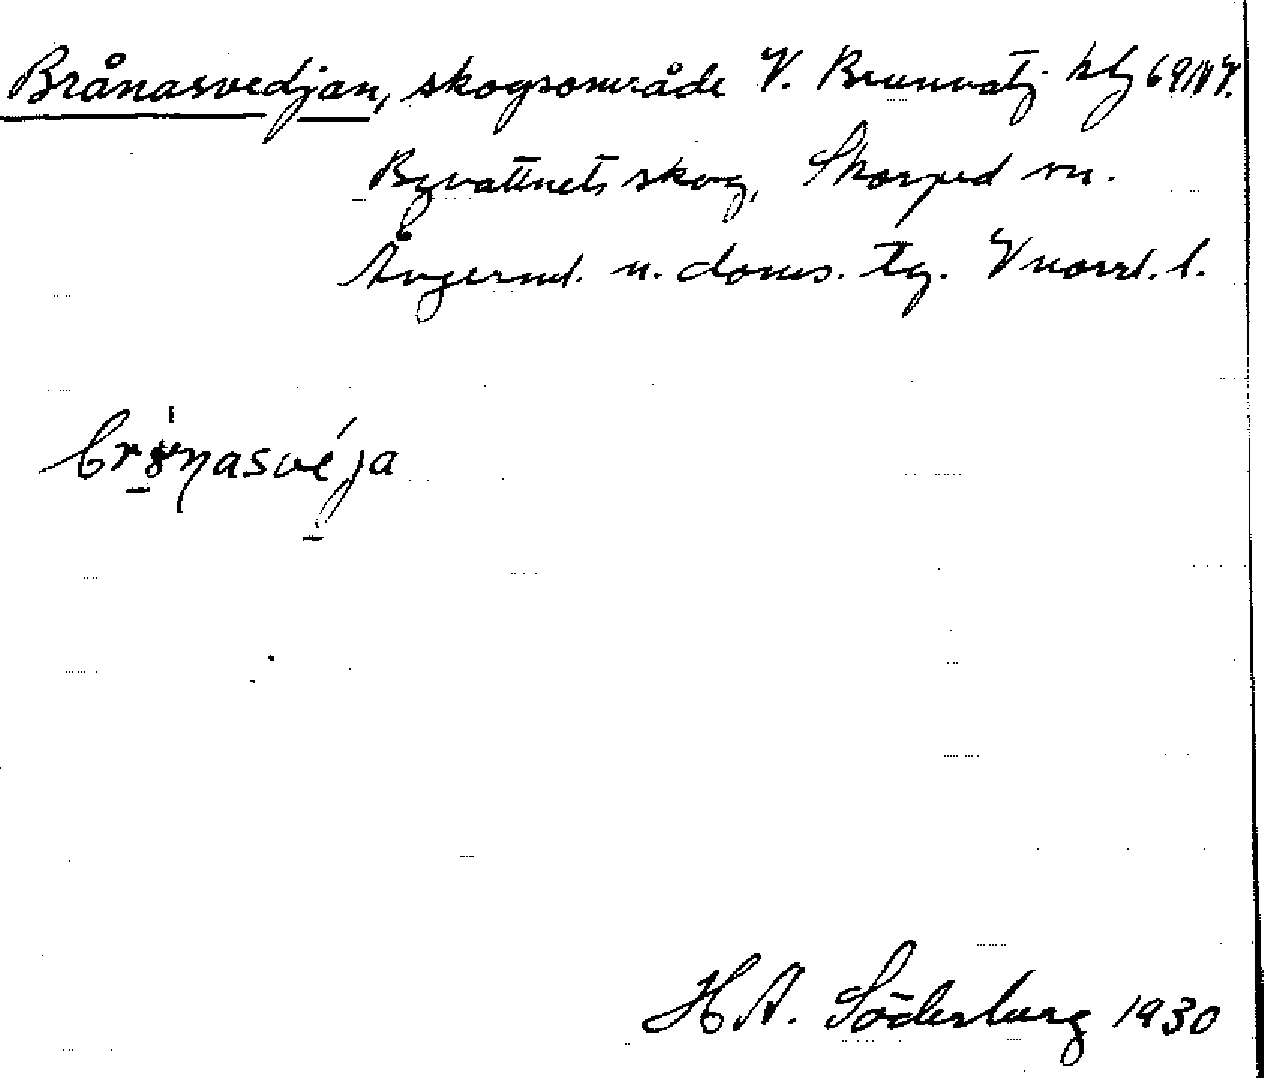 Brånasvedjan, skogsområde V. Brunvatj. blj 69 IV V.
Byvattnets skog, Skorped sn.
Ångerml. n. doms. tg. Vnorrl. l.
brånasvéja
H A. Söderberg 1930